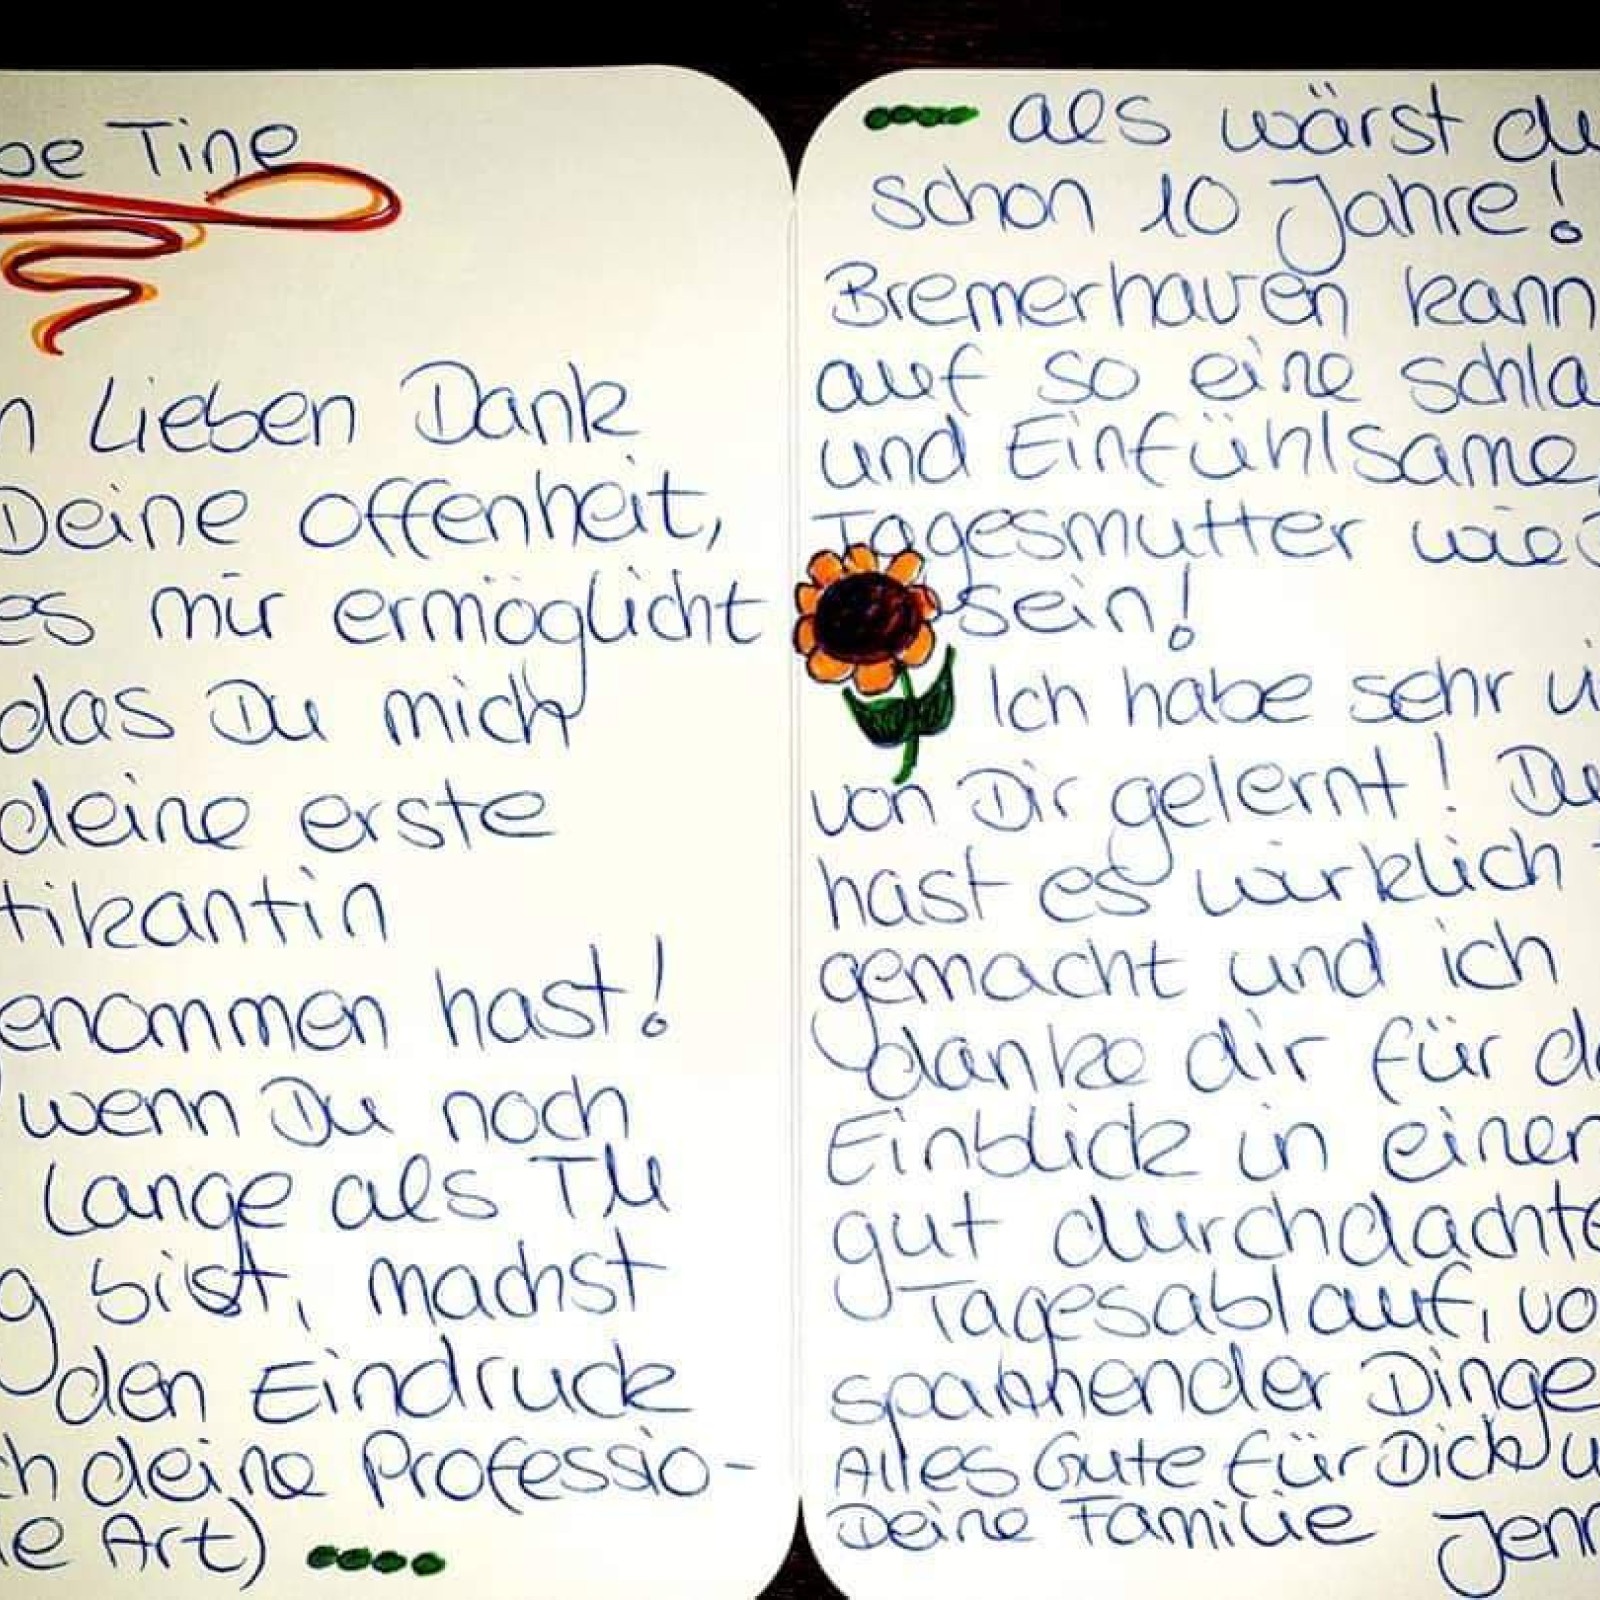 be Tine
n Lieben Dank
Deine Offenheit,
es mir ermöglicht
das Du mich
deine erste
tikantin
enommen hast!
wenn Du noch
Lange als TM
g bist, machst
den Eindruck
ch deine Professio-
le Art)
als wärst du
schon 10 Jahre!
Bremerhaven kann
auf so eine schla
und Einfühlsame
Tagesmutter wie
sein!
Ich habe sehr vi
von Dir gelernt! Du
hast es wirklich
gemacht und ich
danke dir für de
Einblick in einen
gut durchdachte
Tagesablauf, vo
spannender Dinge
Alles Gute für Dich u
Deine Familie Jenn